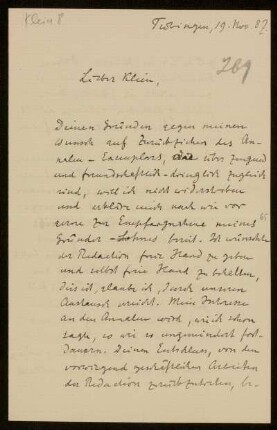 Klein 8
Tübingen, 19. Nov. 87
269
Lieber Klein,
Deinen Gründen gegen meinen
Wunsch auf Zurückziehen des An-
nalen-Exemplars, die überzeugend
und freundschaftlich-dringlich zugleich
sind, will ich nicht widerstreben
und erkläre mich nach wie vor
gerne zur Empfangnahme meines
Gründer-Lohnes bereit. Ich wünschte
der Redaction freie Hand zu geben
und selbst freie Hand zu behalten,
dies ist, glaube ich, durch unseren
Austausch erreicht. Mein Interesse
an den Annalen wird, wie ich schon
sagte, so wie so ungemindert fort-
dauern. Deinen Entschluss, von den
vorwiegend geschäftlichen Arbeiten
der Redaction zurückzutreten, be-